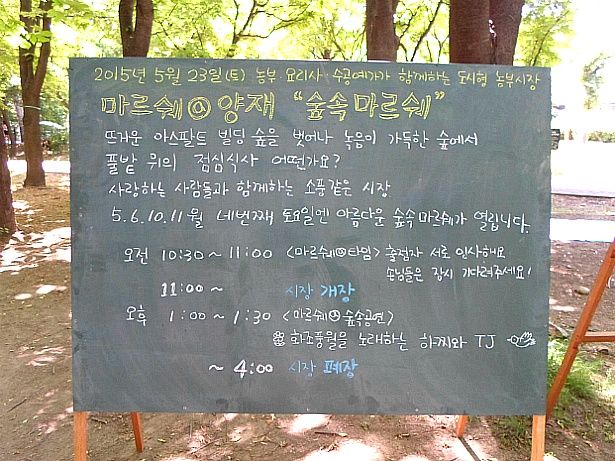 2015년 5월 23일(토) 농부·요리사·수공예가가 함께하는 도시형 농부시장
마르쉐@양재 "숲속마르쉐"
뜨거운 아스팔트 빌딩 숲을 벗어나 녹음이 가득한 숲에서
풀밭 위의 점심식사 어떤가요?
사랑하는 사람들과 함께하는 소풍같은 시장
5.6.10.11월 네번째 토요일엔 아름다운 숲속마르쉐가 열립니다.
오전 10:30~11:00 <마르쉐@타임> 출점자 서로 인사해요
손님들은 잠시 기다려주세요!
11:00~ 시장 개장
오후 1:00~1:30 <마르쉐@숲속공연>
화조풍월을 노래하는 하찌와 TJ
~4:00 시장 폐장